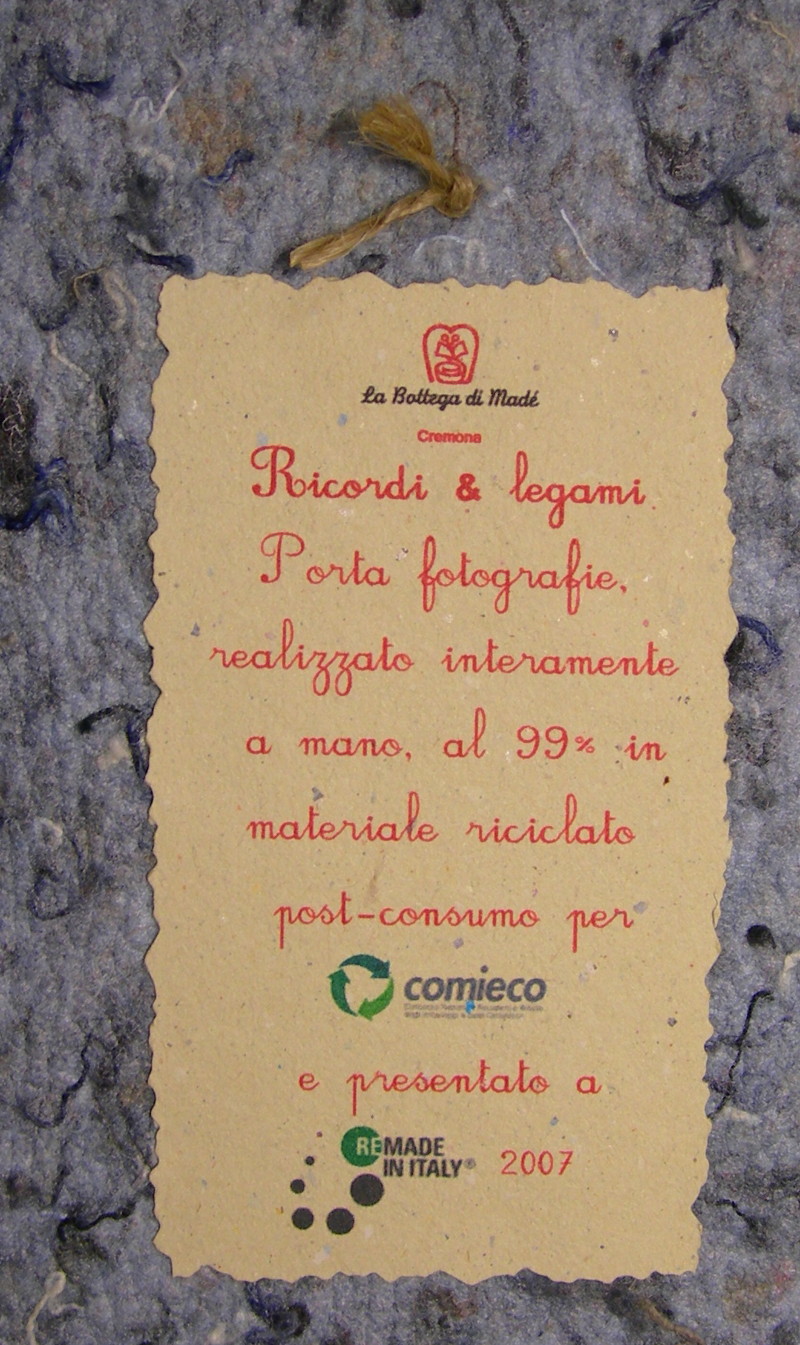 La Bottega di Madé
Cremona
Ricordi & legami
Porta fotografie,
realizzato interamente
a mano, al 99% in
materiale riciclato
post-consumo per
comieco
e presentato a
REMADE
IN ITALY® 2007